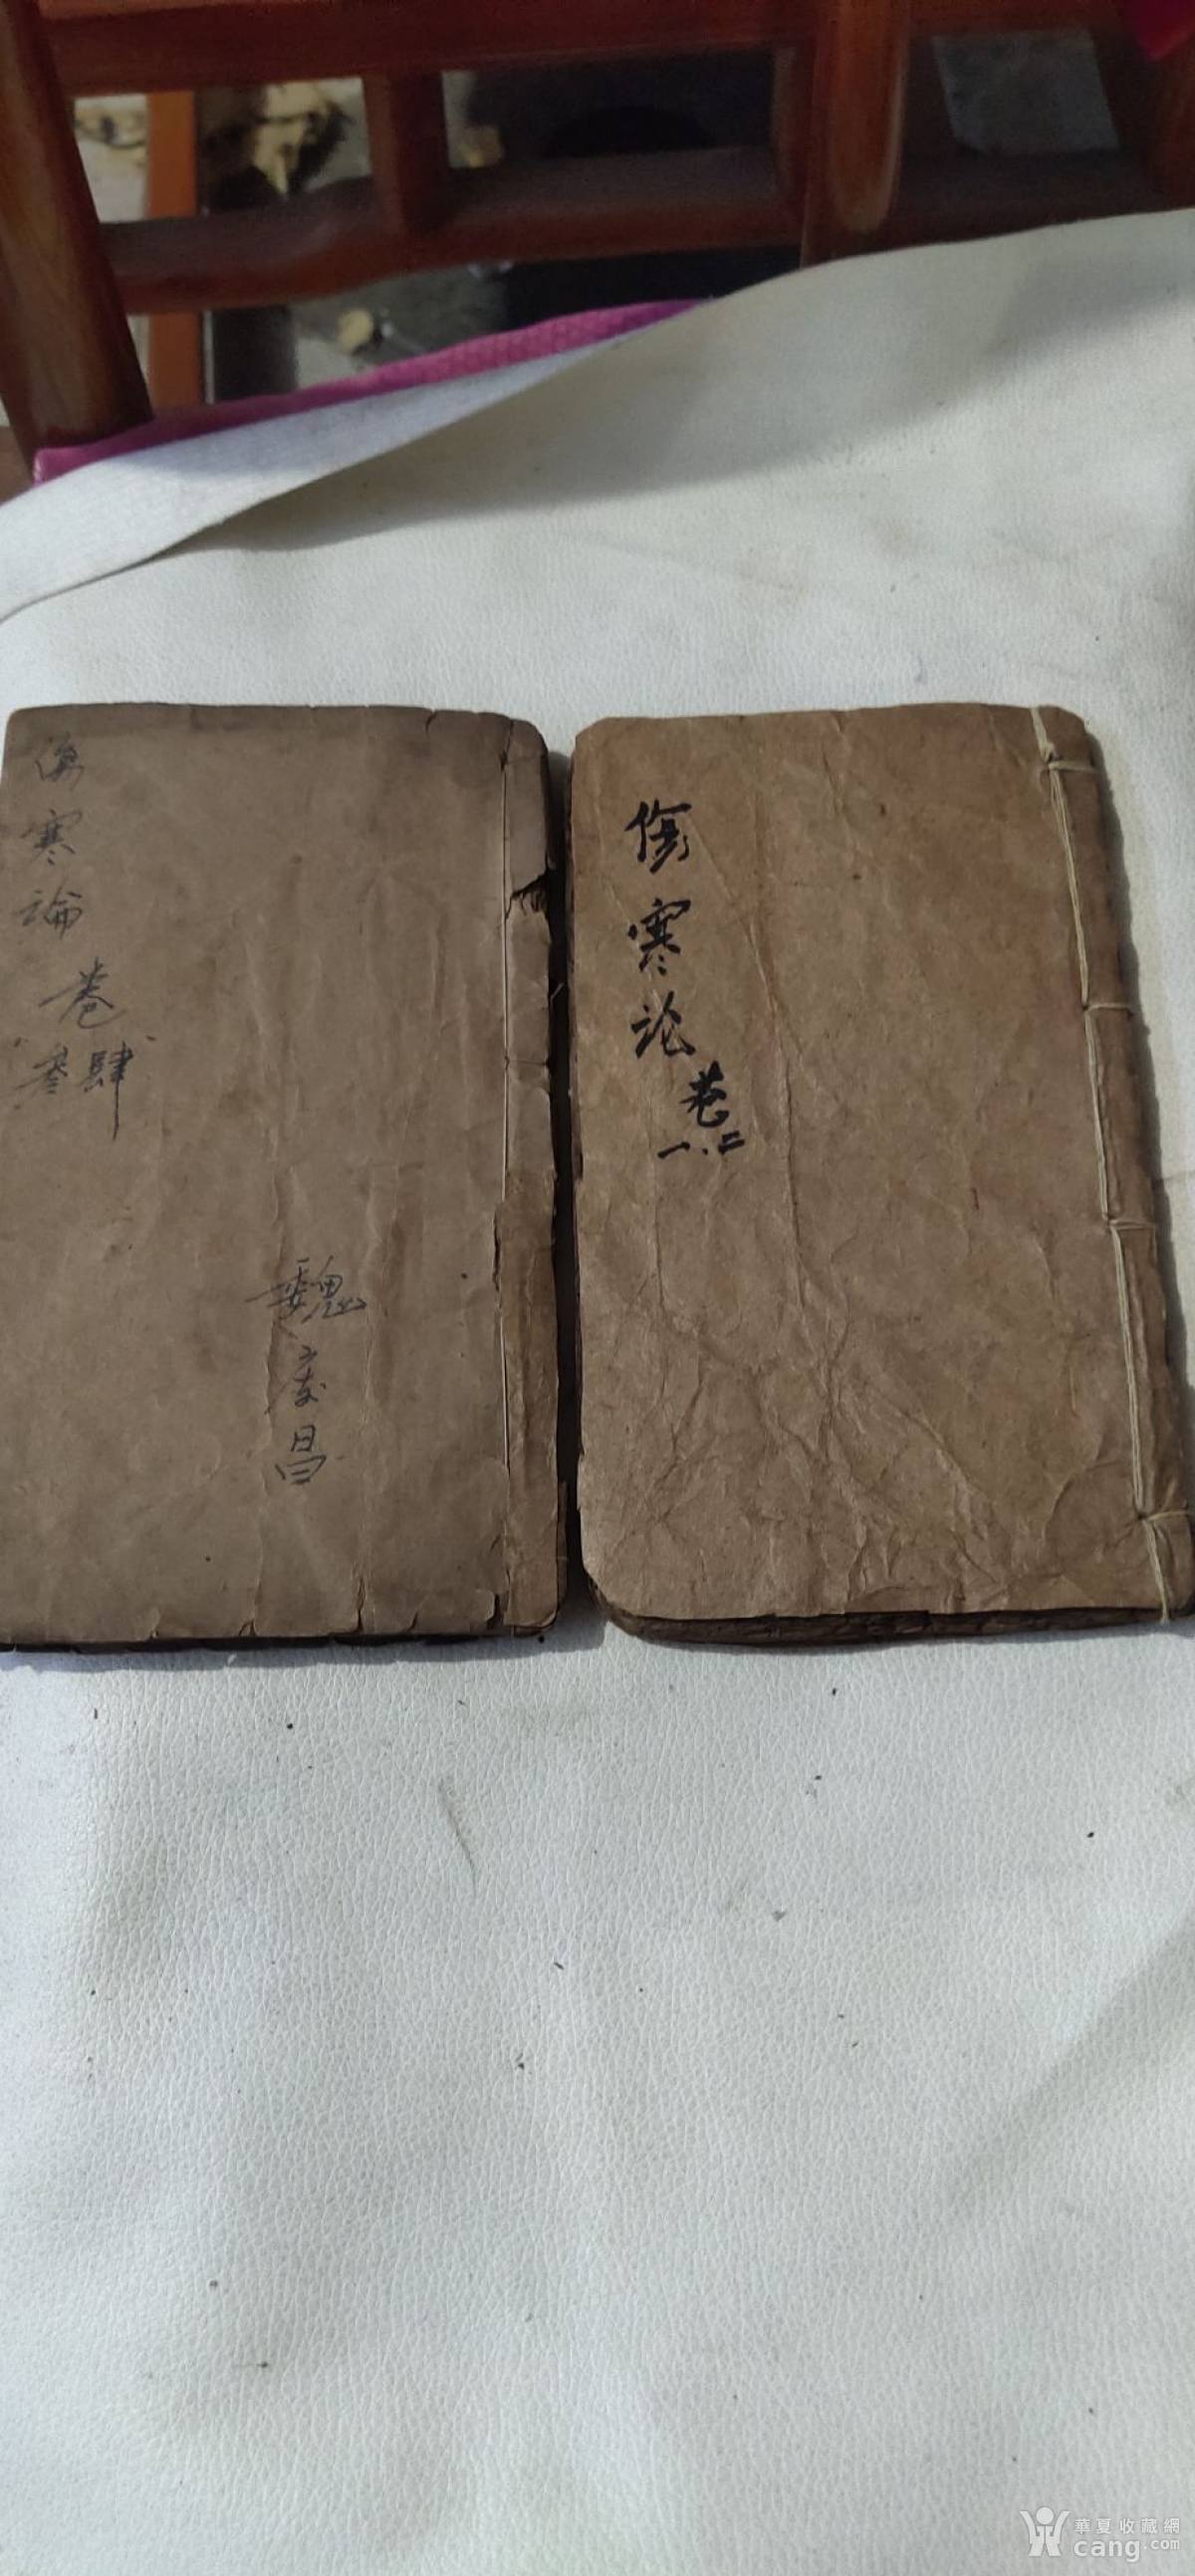 傷寒論
卷
叁肆
魏彦昌
傷寒论
卷
一.二
華夏收藏網
cang.com